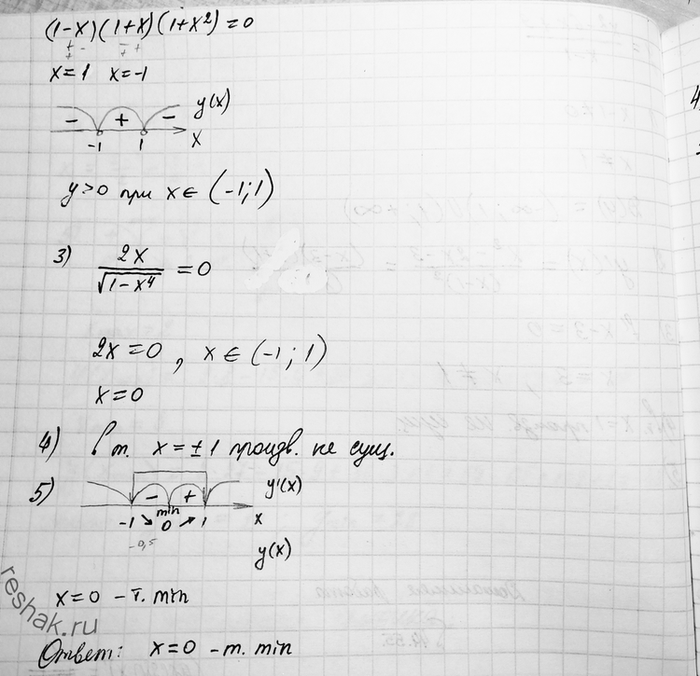 (1-x)(1+x)(1+x²)=0
+ - - +
+ -
x=1 x=-1
- + - y(x)
-1 1 x
y>0 при x∈(-1;1)
3) 2x/√(1-x⁴) = 0
2x=0, x∈(-1;1)
x=0
4) в т. x=±1 произв. не сущ.
5) - + y'(x)
min
-1 ↘ 0 ↗ 1 x
-0,5
y(x)
x=0 - т. min
Ответ: x=0 - т. min
reshak.ru